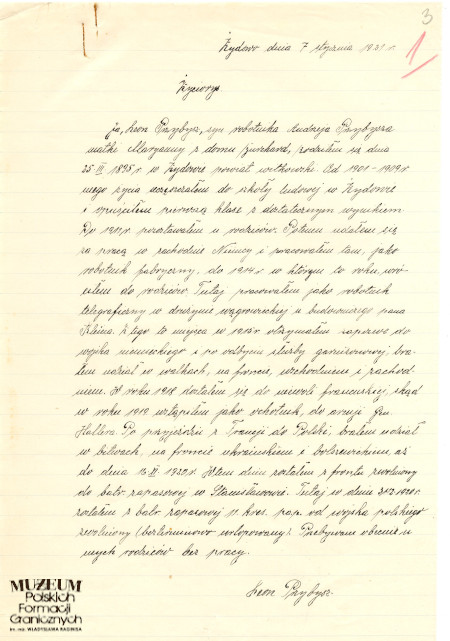 3
1
Żydowo dnia 7 stycznia 1921 r.
Życiorys
Ja, Leon Przybysz, syn robotnika Andrzeja Przybysza
matki Maryanny z domu rodziłem się dnia
25. III 1895 r. w Żydowie powiat witkowski. Od 1901-1909 r.
mego życia uczęszczałem do szkoły ludowej w Żydowie
i opuściłem pierwszą klasę z dostatecznym wynikiem.
Do 1911 r. pozostawałem u rodziców. Potem udałem się
za pracą w zachodnie Niemcy i pracowałem tam, jako
robotnik fabryczny, do 1914 r. w którym to roku wró-
ciłem do rodziców. Tutaj pracowałem jako robotnik
telegraficzny w drużynie wągrowieckiej u budowniczego pana
Kleina. Z tego to miejsca w 1915 r. otrzymałem zaprzęg do
wojska niemieckiego i po odbyciu służby garnizonowej, bra-
łem udział w walkach, na froncie, wschodniem i zachod-
niem. W roku 1918 dostałem się do niewoli francuskiej, skąd
w roku 1919 wstąpiłem jako ochotnik, do armji Jen.
Hallera. Po przyjeździe z Francji do Polski, brałem udział
w bitwach, na froncie ukraińskim i bolszewickim, aż
do dnia 1920 r. W tem dniu zostałem z frontu zwolniony
do baon zapasowy w Stanisławowie. Tutaj w dniu 1920 r.
zostałem z baon zapasowy 11 kres. pap. od wojska polskiego
zwolniony (bezterminowo urlopowany). Przebywam obecnie u
mych rodziców bez pracy.
Leon Przybysz
MUZEUM
Polskich
Formacji
Granicznych
im. mjr. WŁADYSŁAWA RAGINISA